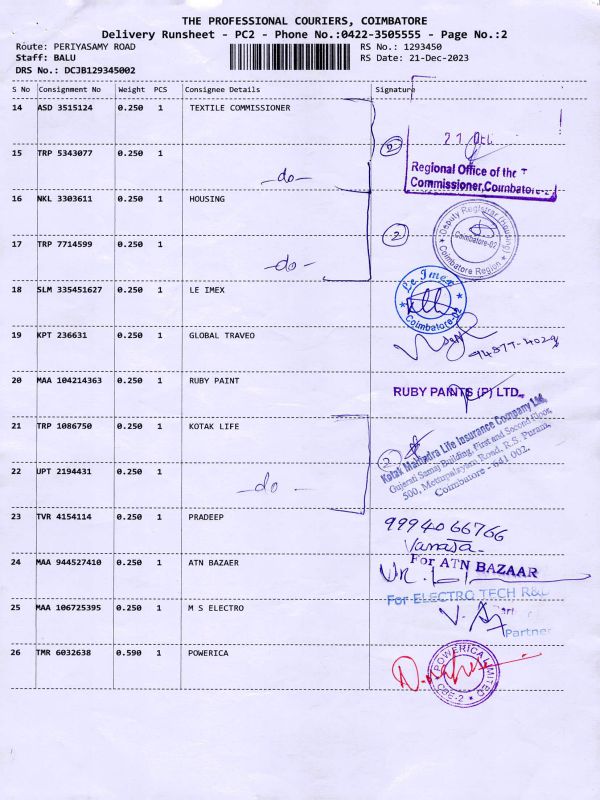 THE PROFESSIONAL COURIERS, COIMBATORE
Delivery Runsheet - PC2 - Phone No.:0422-3505555 - Page No.:2
Route: PERIYASAMY ROAD
RS No.: 1293450
Staff: BALU
RS Date: 21-Dec-2023
DRS No.: DCJB129345002
S No Consignment No Weight PCS Consignee Details Signature
14 ASD 3515124 0.250 1 TEXTILE COMMISSIONER
2
21
Regional Office of the
Commissioner, Coimbatore-2
15 TRP 5343077 0.250 1 -do-
16 NKL 3303611 0.250 1 HOUSING
Deputy Registrar (Housing)
Coimbatore-02
Coimbatore Region
2
17 TRP 7714599 0.250 1 -do-
18 SLM 335451627 0.250 1 LE IMEX
Le Imex
Coimbatore-02
19 KPT 236631 0.250 1 GLOBAL TRAVEO
20 MAA 104214363 0.250 1 RUBY PAINT
RUBY PAINTS (P) LTD.,
21 TRP 1086750 0.250 1 KOTAK LIFE
2
Kotak Mahindra Life Insurance Company Ltd.
Gujerati Samaj Building, First and Second floor,
500, Mettupalayam Road, R.S. Puram,
Coimbatore - 641 002.
22 UPT 2194431 0.250 1 -do-
23 TVR 4154114 0.250 1 PRADEEP
9994066766
Vanaja
24 MAA 944527410 0.250 1 ATN BAZAER
For ATN BAZAAR
25 MAA 106725395 0.250 1 M S ELECTRO
For ELECTRO TECH R&D
Partner
26 TMR 6032638 0.590 1 POWERICA
POWERICA LIMITED
CBE-2